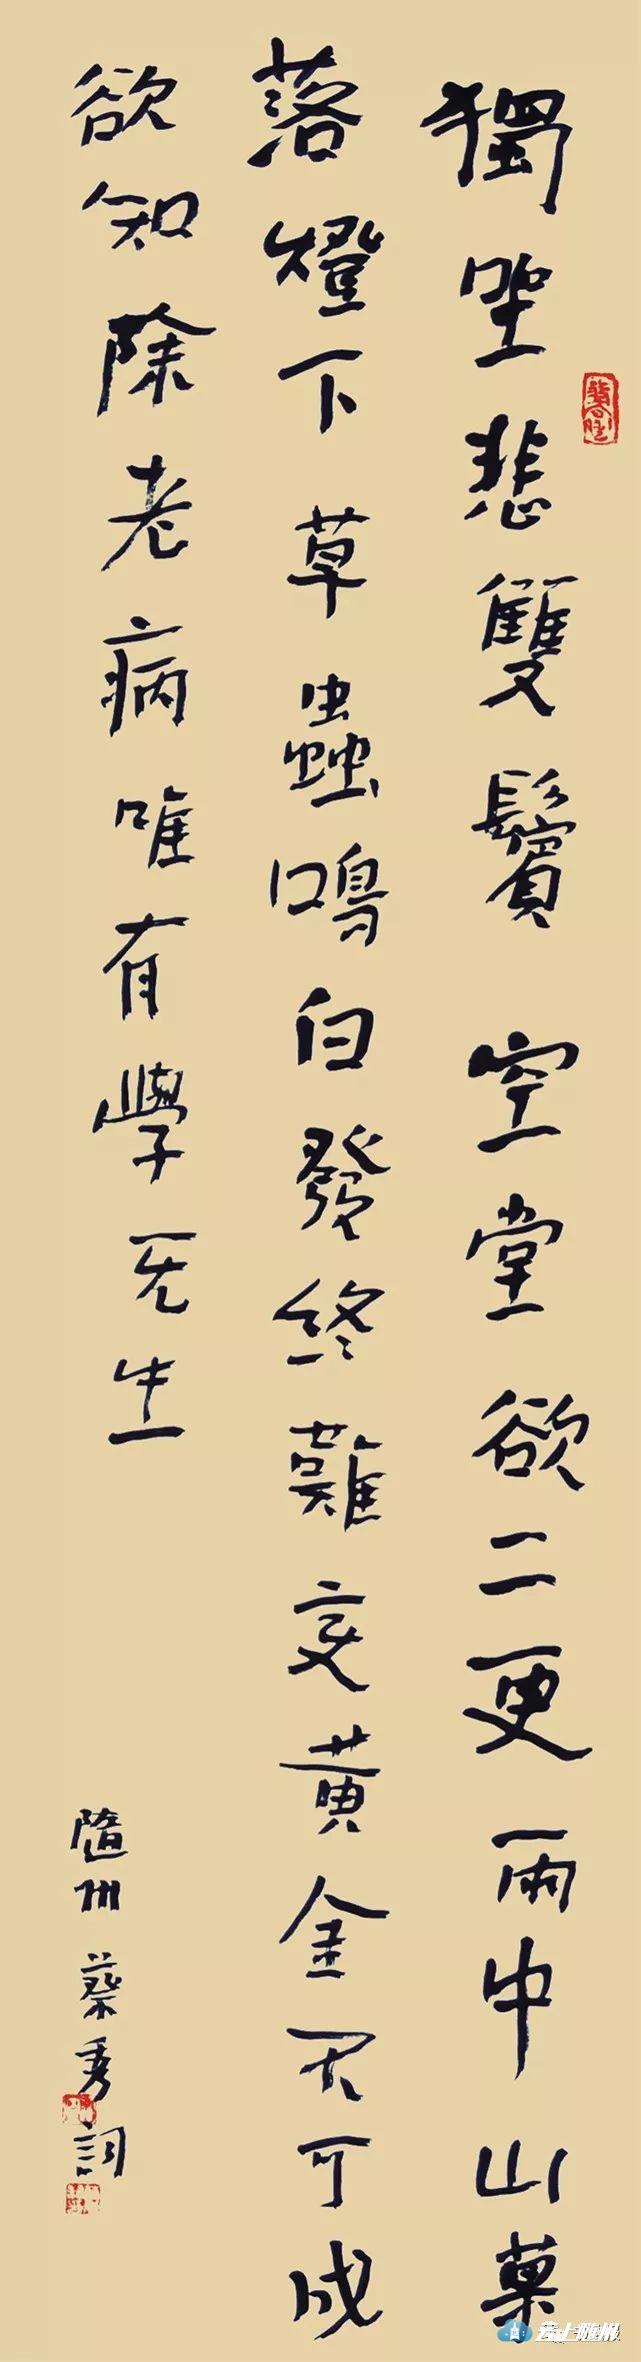 獨坐悲雙鬢空堂欲二更雨中山菓
落燈下草蟲鳴白發終難变黄金不可成
欲知除老病唯有學无生
隨州蔡秀詞
云上随州